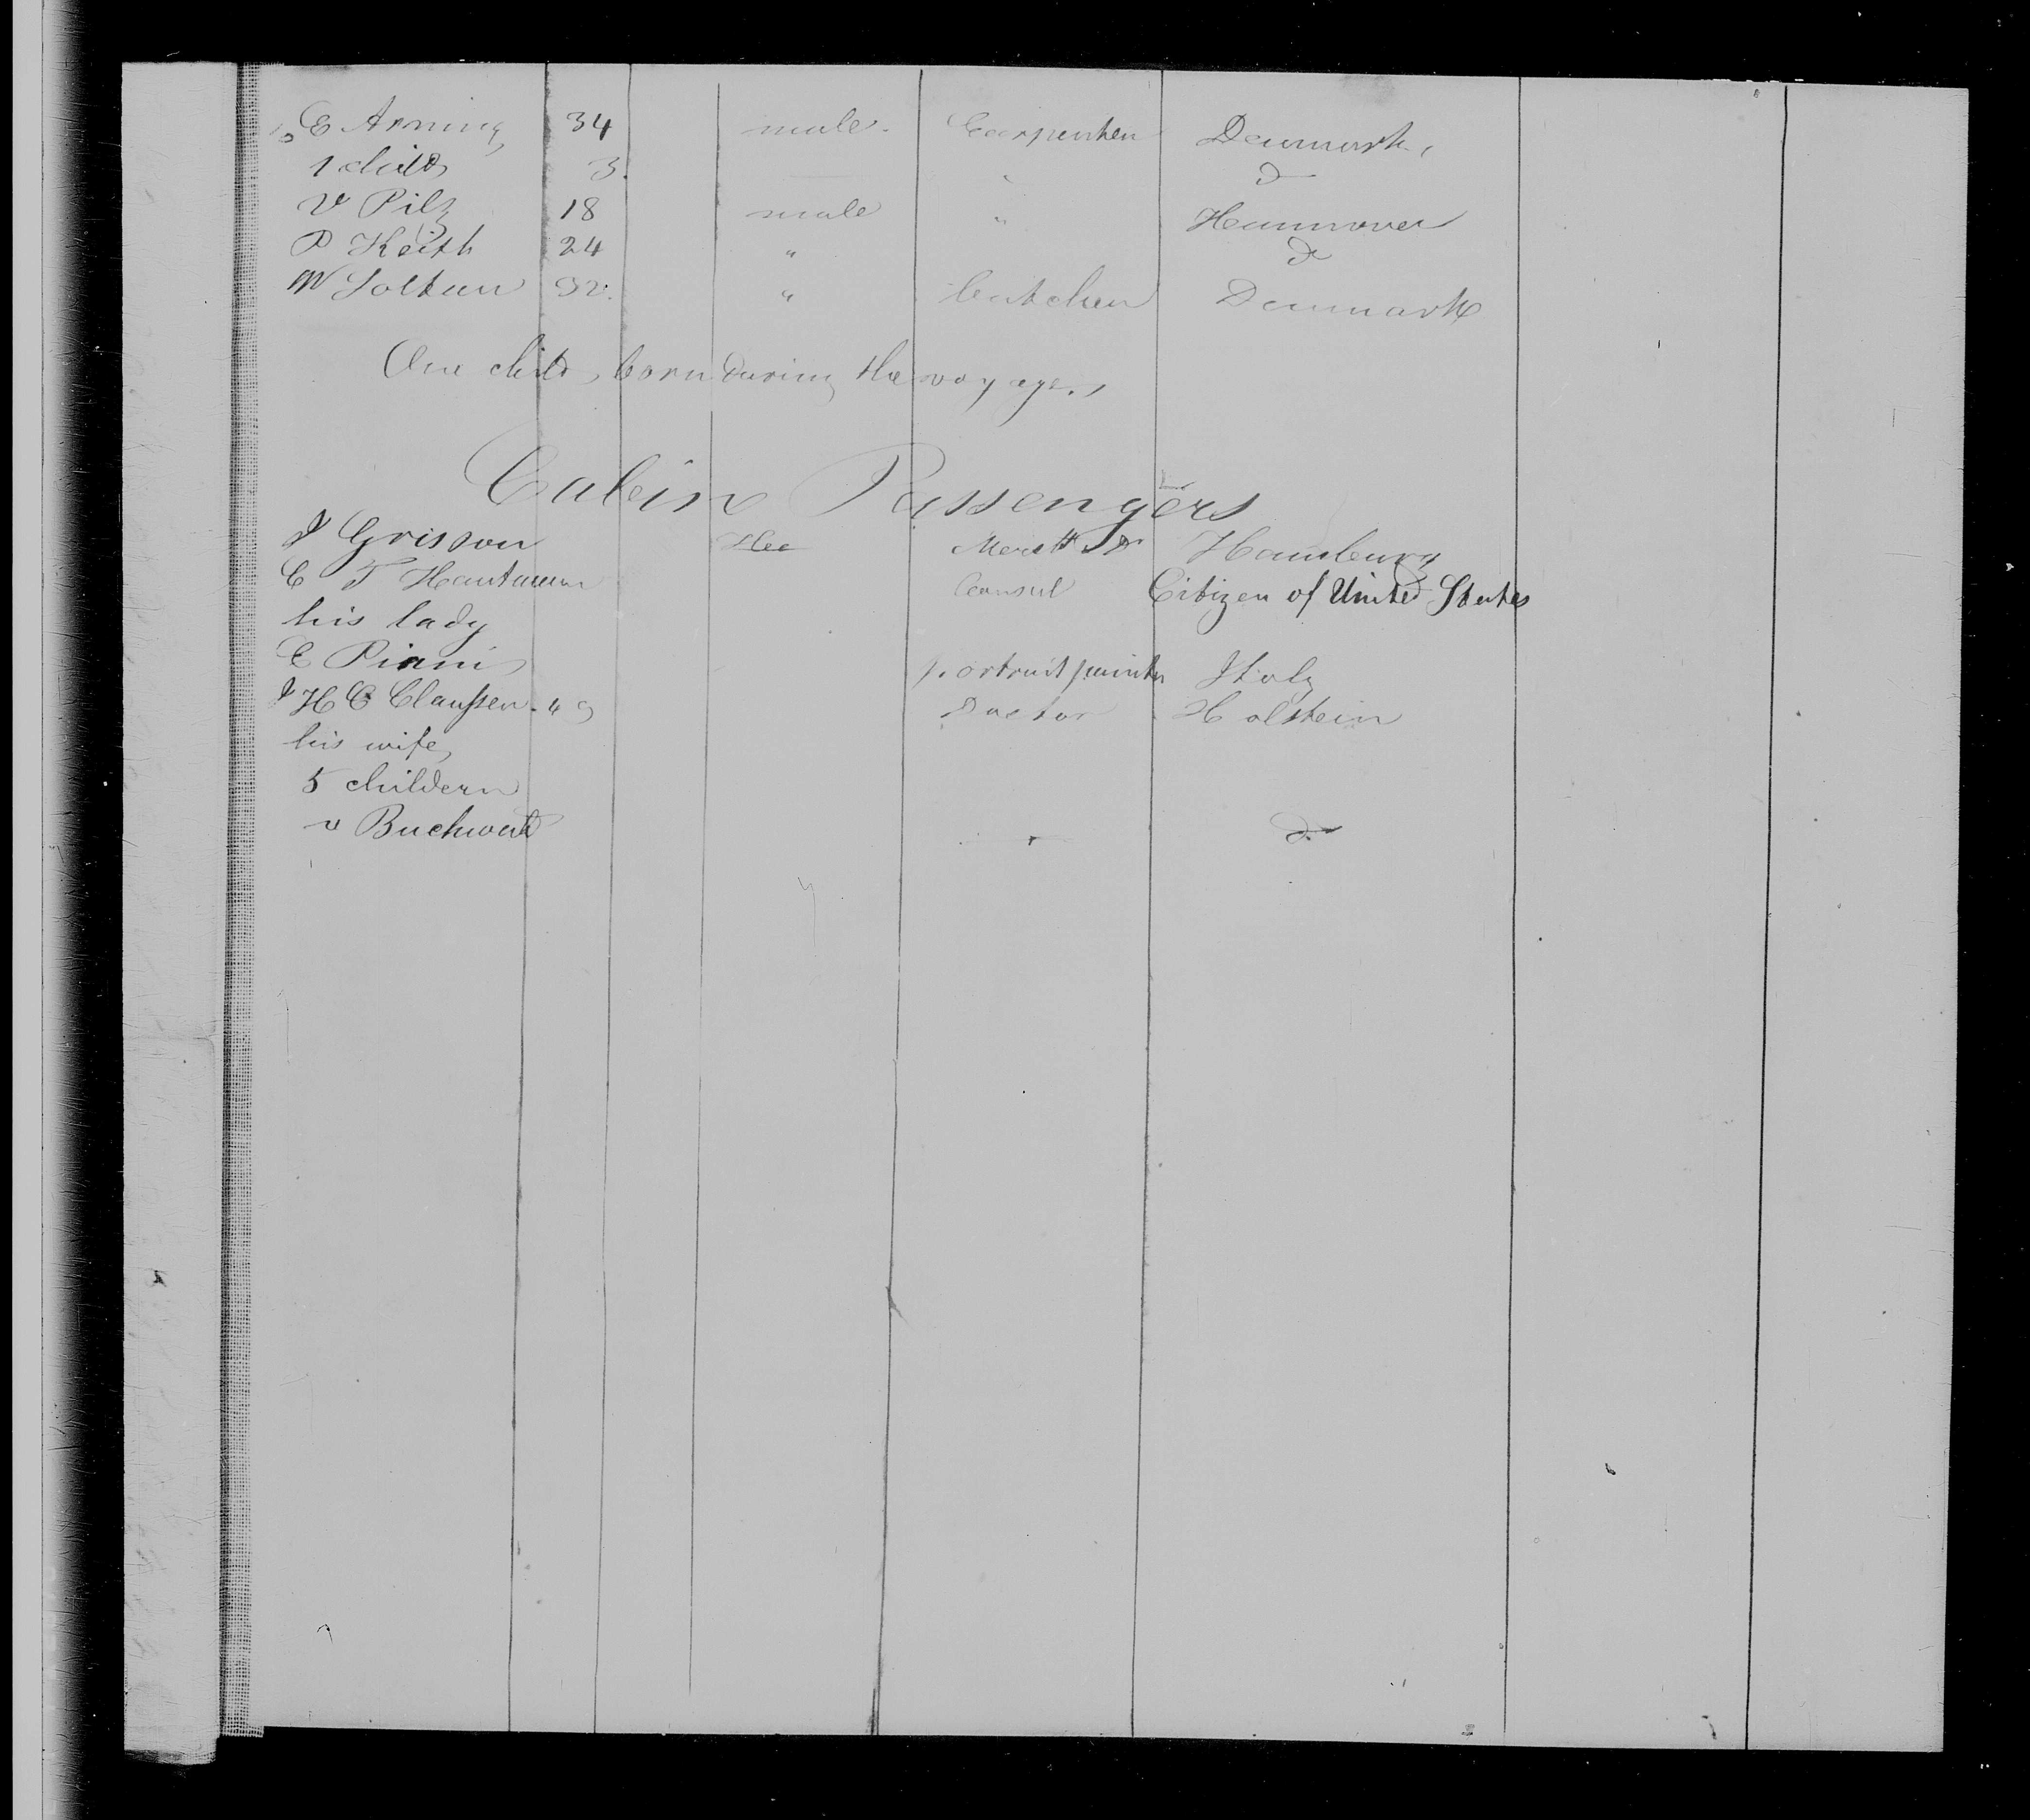 E Arning 34 male Carpenter Denmark
1 child 3 " do
V Pilz 18 male " Hannover
P Keith 24 " do
W Soltau 32 " butcher Denmark
One child born during the voyage
Cabin Passengers
J Grisson Mercht Hamburg
C F Hantmann Consul Citizen of United States
his lady
C Piani portrait painter Italy
J H C Claussen Doctor Holstein
his wife
5 childern
v Buchwald do